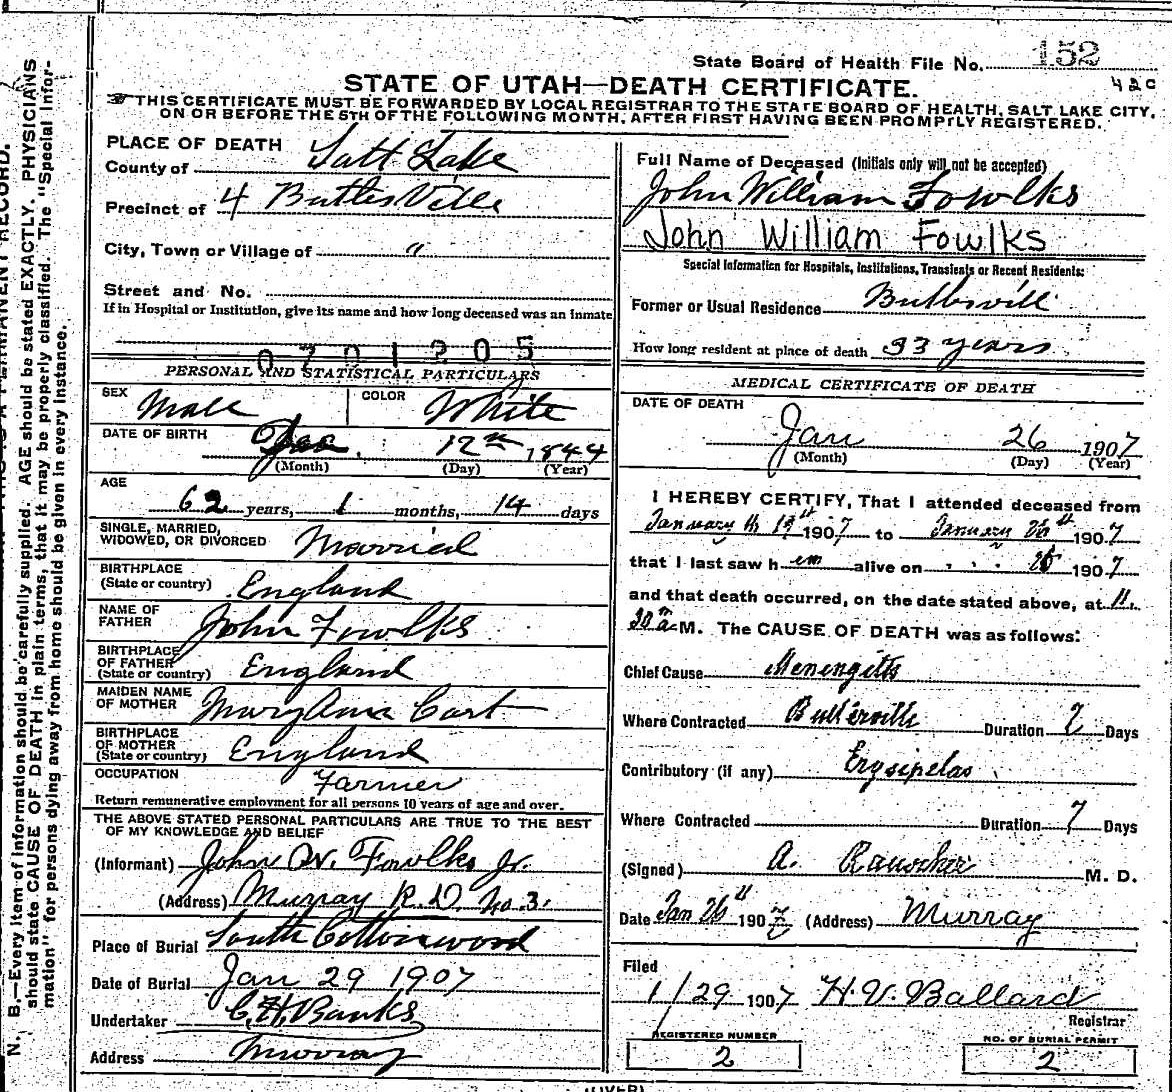 State Board of Health File No. 152
420
STATE OF UTAH—DEATH CERTIFICATE.
THIS CERTIFICATE MUST BE FORWARDED BY LOCAL REGISTRAR TO THE STATE BOARD OF HEALTH, SALT LAKE CITY,
ON OR BEFORE THE 5TH OF THE FOLLOWING MONTH, AFTER FIRST HAVING BEEN PROMPTLY REGISTERED.
N. B.—Every item of information should be carefully supplied. AGE should be stated EXACTLY. PHYSICIANS
should state CAUSE OF DEATH in plain terms, that it may be properly classified. The "Special Infor-
mation" for persons dying away from home should be given in every instance.
PLACE OF DEATH
County of Salt Lake
Precinct of 4 Butler Ville
City, Town or Village of "
Street and No.
If in Hospital or Institution, give its name and how long deceased was an inmate
0701205
PERSONAL AND STATISTICAL PARTICULARS
SEX Male COLOR White
DATE OF BIRTH Dec. 12th 1844
(Month) (Day) (Year)
AGE
62 years, 1 months, 14 days
SINGLE, MARRIED,
WIDOWED, OR DIVORCED Married
BIRTHPLACE
(State or country) England
NAME OF
FATHER John Fowlks
BIRTHPLACE
OF FATHER
(State or country) England
MAIDEN NAME
OF MOTHER Mary Ann Cart
BIRTHPLACE
OF MOTHER
(State or country) England
OCCUPATION Farmer
Return remunerative employment for all persons 10 years of age and over.
THE ABOVE STATED PERSONAL PARTICULARS ARE TRUE TO THE BEST
OF MY KNOWLEDGE AND BELIEF
(Informant) John W. Fowlks Jr.
(Address) Murray R.D. No. 3.
Place of Burial South Cottonwood
Date of Burial Jan 29 1907
Undertaker C. H. Banks
Address Murray
Full Name of Deceased (Initials only will not be accepted)
John William Fowlks
John William Fowlks
Special Information for Hospitals, Institutions, Transients or Recent Residents:
Former or Usual Residence Butlerville
How long resident at place of death 33 years
MEDICAL CERTIFICATE OF DEATH
DATE OF DEATH
Jan 26 1907
(Month) (Day) (Year)
I HEREBY CERTIFY, That I attended deceased from
January 1907 to January 26th 1907
that I last saw h em alive on " " " 26 1907
and that death occurred, on the date stated above, at 11.
30 a. M. The CAUSE OF DEATH was as follows:
Chief Cause Menengitis
Where Contracted Butlerville Duration 2 Days
Contributory (if any) Erysipelas
Where Contracted Duration 7 Days
(Signed) A. M. D.
Date Jan 26th 1907 (Address) Murray
Filed
1/29 1907 H. V. Ballard
Registrar
REGISTERED NUMBER
2
NO. OF BURIAL PERMIT
2
(OVER)